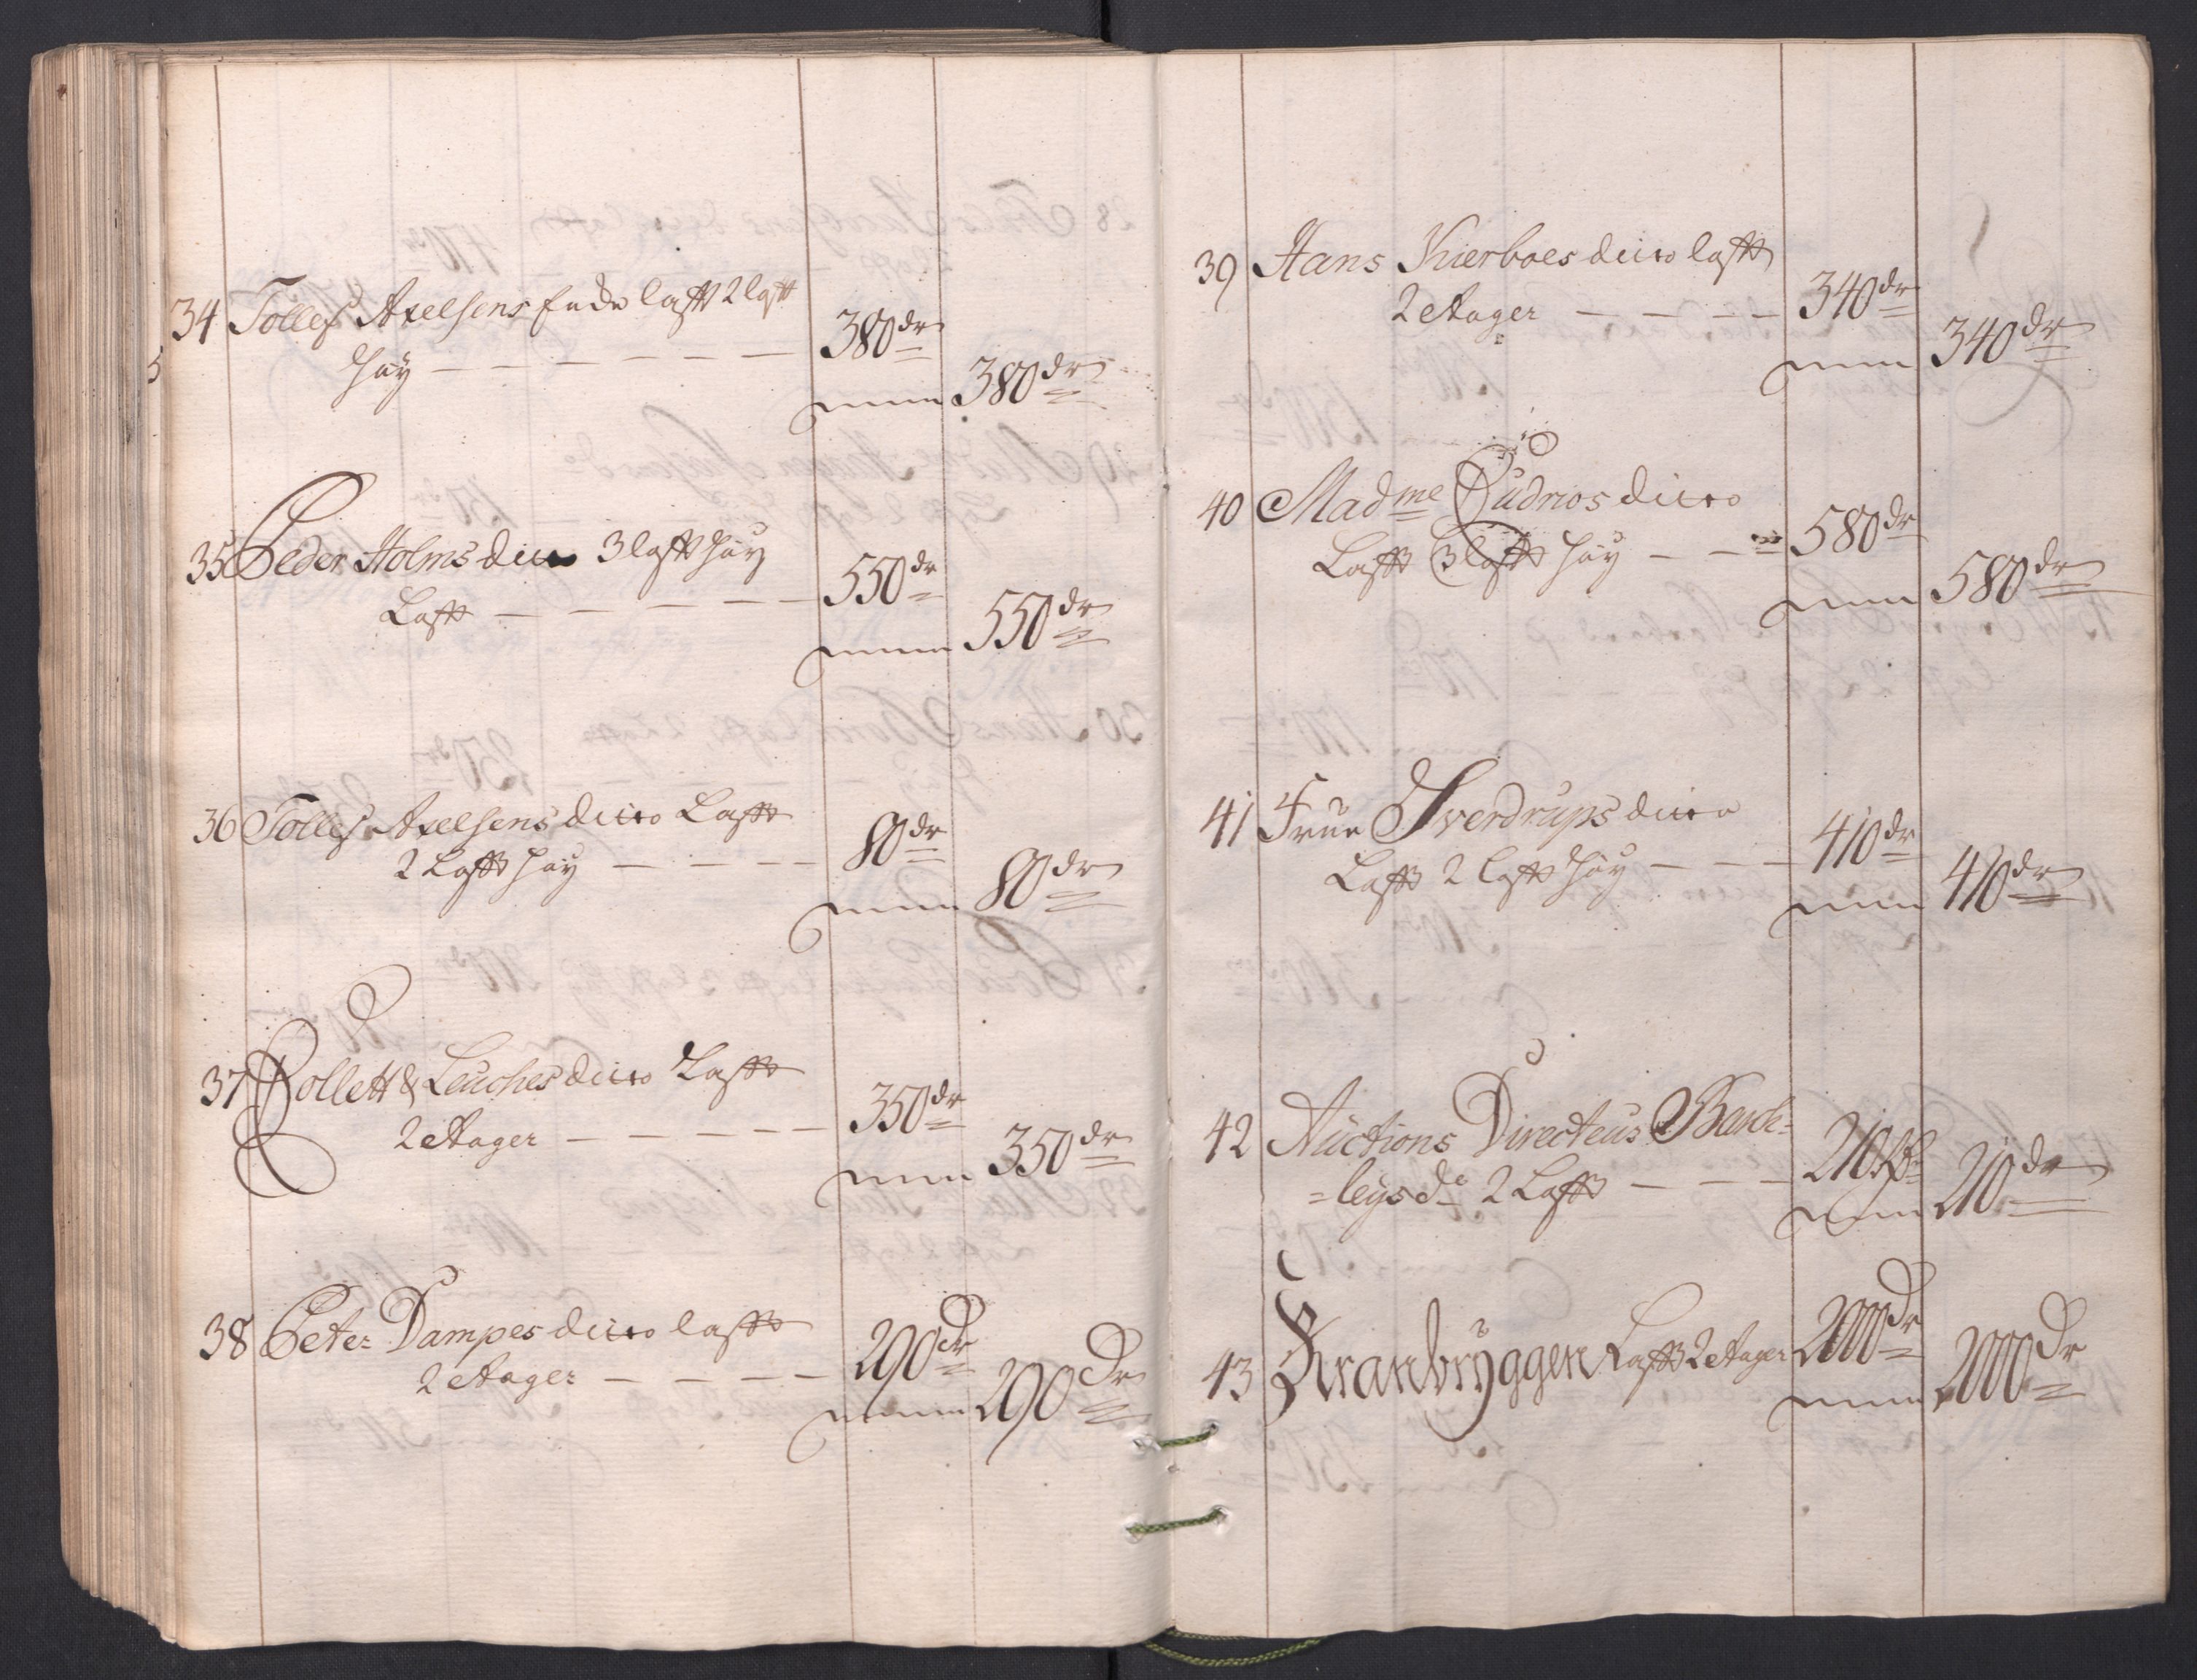 34 Tollef Axelsens Ende laft 2 laft
høÿ — — — — — — 380 dr
380 dr
35 Peder Holms ditto 3 laft høÿ
Laft — — — — — 550 dr
550 dr
36 Tollef Axelsens ditto Laft
2 Laft høÿ — — — — 80 dr
80 dr
37 Collett & Leuches ditto Laft
2 Etager — — — — — 350 dr
350 dr
38 Peter Dampes ditto laft
2 Etager — — — — 290 Dr
290 Dr
5
39 Hans Kierboes ditto laft
2 Etager — — — — 340 dr
340 dr
40 Madme ditto
Laft 3 laft høÿ — — 580 dr
580 dr
41 Frue Sverdrups ditto
Laft 2 laft høÿ — — — 410 dr
410 dr
42 Auctions Directeus Barch-
=leÿs do 2 Laft — — — 210
210 dr
43 Kranbrÿggen Laft 2 Etager 2000 dr
2000 Dr